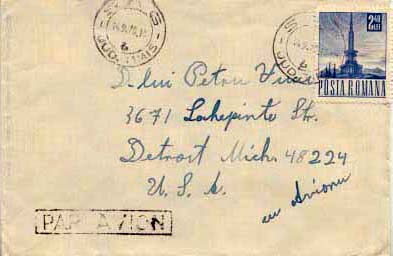 2,40
LEI
POSTA ROMANA
D-lui Petru
3671 Lakepointe Str.
Detroit Mich. 48224
U. S. A.
cu Avionu
PAR AVION